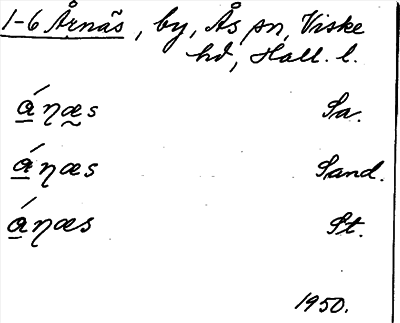 1-6 Årnäs, by, Ås sn, Viske
hd, Hall. l.
ánæs Sa.
ánæs Sand.
ánæs St.
1950.